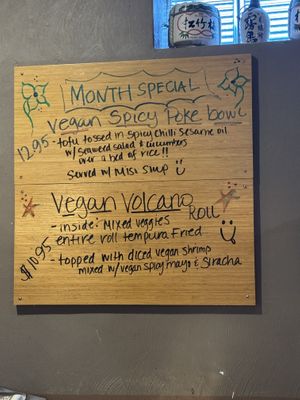 MONTH SPECIAL
Vegan Spicy Poke bowl
12.95 - tofu tossed in spicy chilli sesame oil
w/ seaweed salad & cucumbers
over a bed of rice!!
Served w/ Miso Soup
Vegan Volcano
Roll
- inside: Mixed veggies
entire roll tempura Fried
$10.95 - topped with diced vegan shrimp
mixed w/ vegan spicy mayo & Siracha